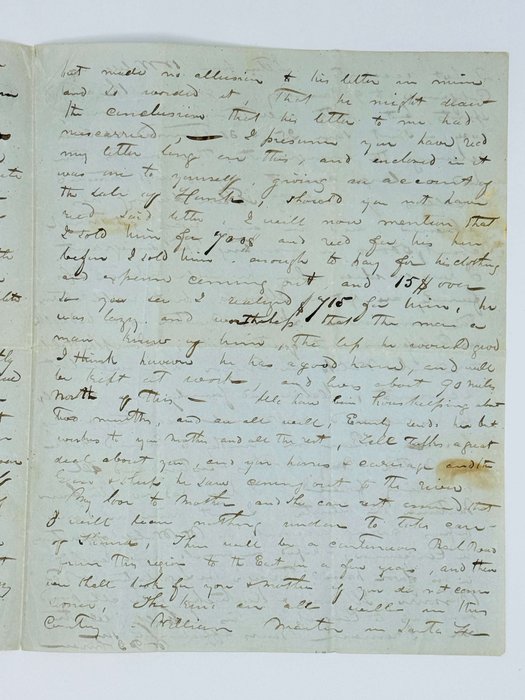 but made no allusion to his letter in mine
and so worded it, that he might draw
the conclusion that his letter to me had
miscarried, — I presume you have recd
my letter long ere this, and enclosed in it
was one to yourself, giving an account of
the sale of , should you not have
recd said letter, I will now mention that
I sold him for 700$ and recd for his hire
before I sold him enough to pay for his clothing
and expense coming out and 15$ over
so you see I realized $715 for him, he
was lazy and worthless that the more a
man knew of him, the less he would give
I think however he has a good home, and will
be kept at work, and lives about 90 miles
North of this. — We have been housekeeping abt
two months, and are all well, Emily sends her best
wishes to you Mother and all the rest, talks a great
deal about you, and your horses & carriage and the
& sheep he saw coming out to the river
My love to Mother, and she can rest assured that
I will leave nothing undone to take care
of , There will be a continuous Rail Road
from this region to the East in a few years, and then
we shall look for you & mother if you do not come
sooner, The kin are all well in this
County William Martin in Santa Fe